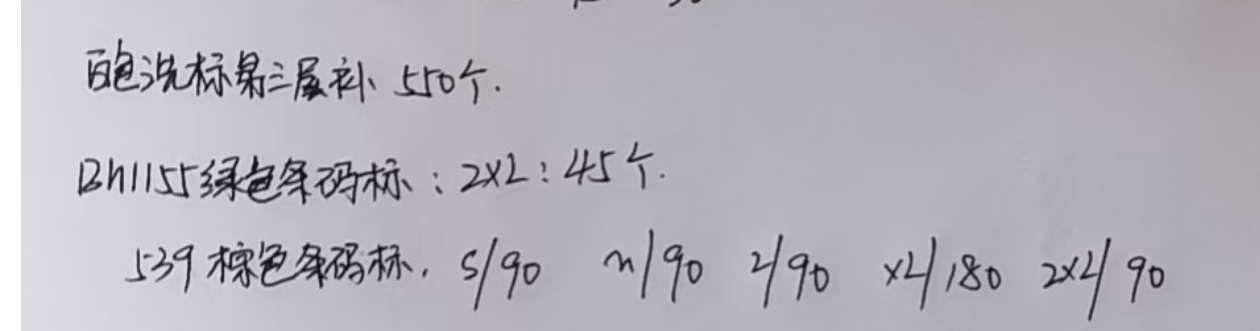 白色洗标第三层补 550个.
BM1155绿色条码标:2XL:45个.
539棕色条码标. S/90 M/90 L/90 XL/180 2XL/90